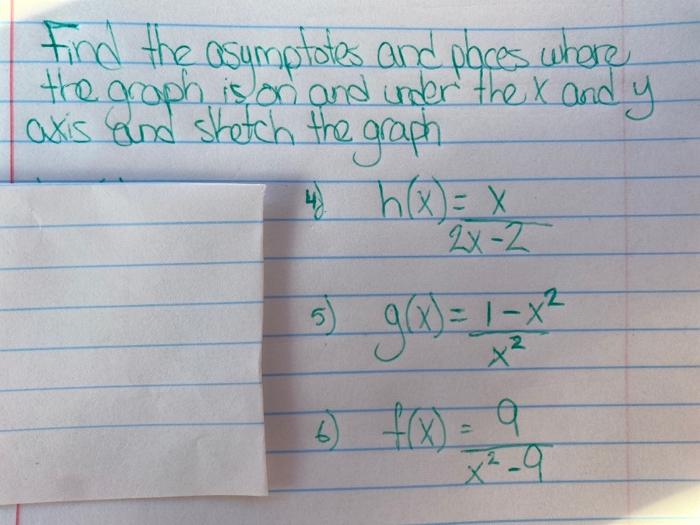 Find the asymptotes and places where
the graph is on and under the x and y
axis and sketch the graph
4) h(x) = x
2x-2
5) g(x) = 1-x²
x²
6) f(x) = 9
x²-9